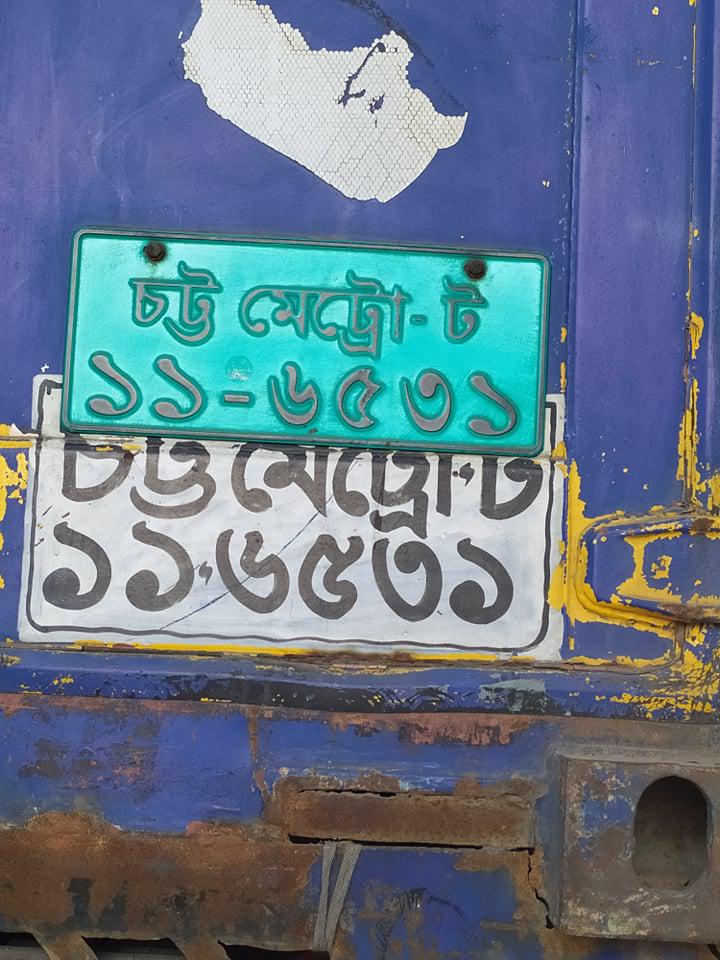 চট্ট মেট্রো-ট
১১-৬৫৩১
চট্ট মেট্রো-ট
১১-৬৫৩১